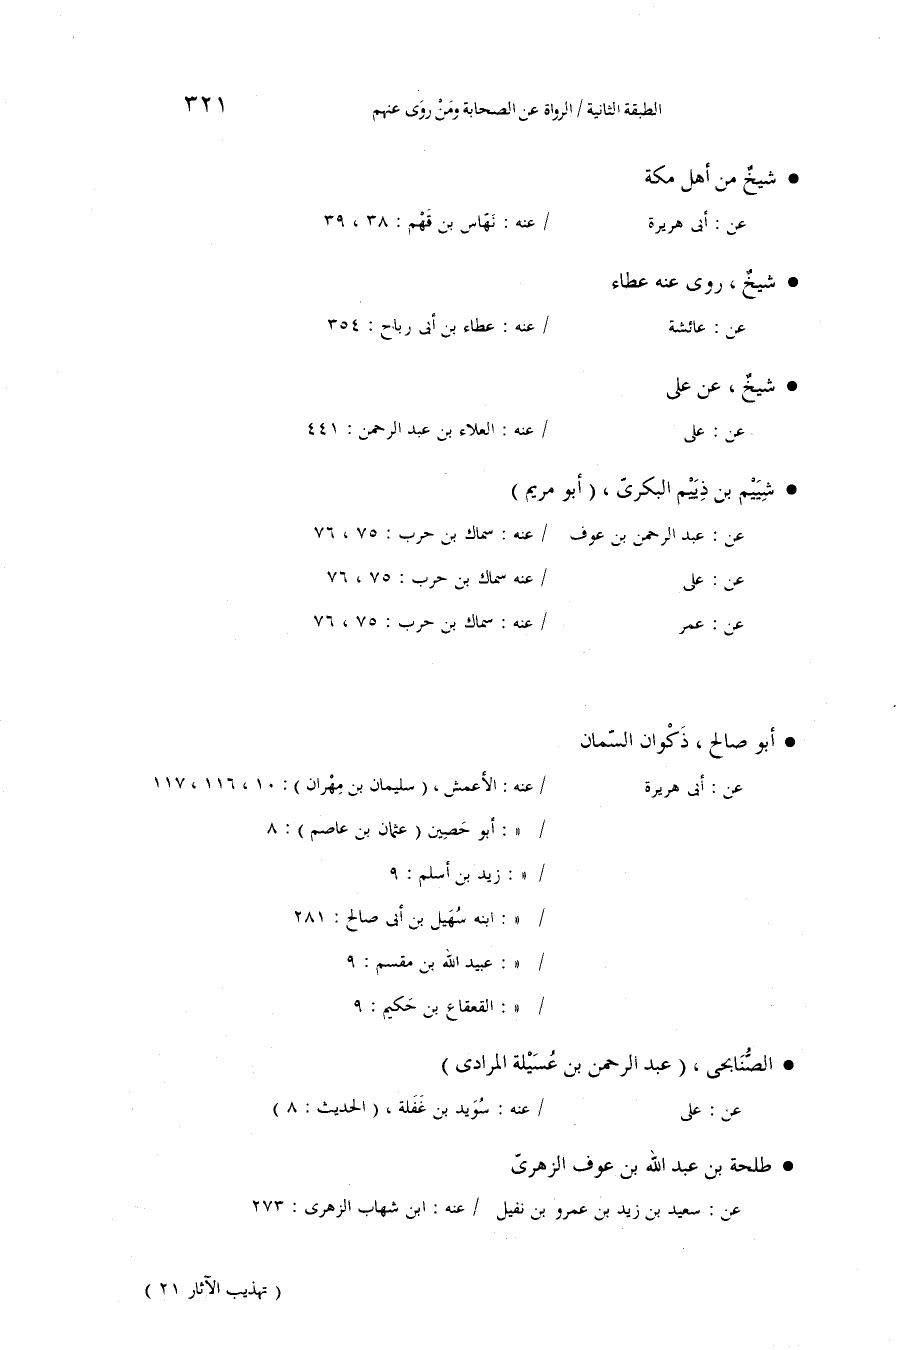 الطبقة الثانية / الرواة عن الصحابة ومَنْ روَى عنهم ٣٢١
● شيخٌ من أهل مكة
عن : أبى هريرة / عنه : نَهّاس بن قَهْم : ٣٨ ، ٣٩
● شيخٌ ، روى عنه عطاء
عن : عائشة / عنه : عطاء بن أبى رباح : ٣٥٤
● شيخٌ ، عن على
عن : على / عنه : العلاء بن عبد الرحمن : ٤٤١
● شِيَيْم بن ذِيَيْم البكرىّ ، ( أبو مريم )
عن : عبد الرحمن بن عوف / عنه : سماك بن حرب : ٧٥ ، ٧٦
عن : على / عنه سماك بن حرب : ٧٥ ، ٧٦
عن : عمر / عنه : سماك بن حرب : ٧٥ ، ٧٦
● أبو صالح ، ذَكْوان السّمان
عن : أبى هريرة / عنه : الأعمش ، ( سليمان بن مِهْران ) : ١٠ ، ١١٦ ، ١١٧
/ » : أبو حَصِين ( عثمان بن عاصم ) : ٨
/ » : زيد بن أسلم : ٩
/ » : ابنه سُهَيل بن أبى صالح : ٢٨١
/ » : عبيد الله بن مقسم : ٩
/ » : القعقاع بن حَكيم : ٩
● الصُّنَابحى ، ( عبد الرحمن بن عُسَيْلة المرادى )
عن : على / عنه : سُوَيد بن غَفَلة ، ( الحديث : ٨ )
● طلحة بن عبد الله بن عوف الزهرىّ
عن : سعيد بن زيد بن عمرو بن نفيل / عنه : ابن شهاب الزهرى : ٢٧٣
( تهذيب الآثار ٢١ )